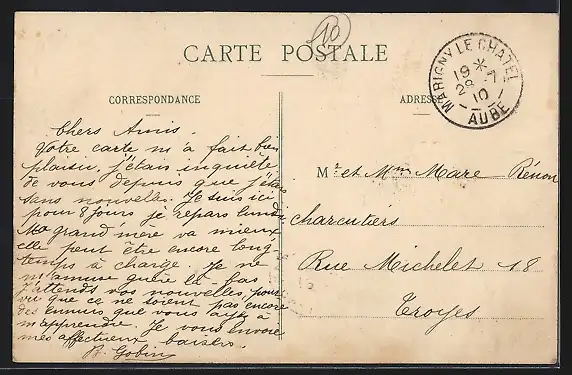 10
CARTE POSTALE
MARIGNY LE CHATEL
19 *
28 - 7
10
AUBE
CORRESPONDANCE
Chers Amis.
Votre carte m'a fait bien
plaisir, j'étais inquiète
de vous depuis que j'étais
sans nouvelles. Je suis ici
pour 8 jours je repars lundi
Ma grand'mère va mieux
elle peut être encore long-
temps à charge. Je ne
m'amuse guère là bas
J'attends vos nouvelles, pour
vu que ce ne soient pas encore
des ennuis que vous ayez à
m'apprendre. Je vous envoie
mes affectueux baisers.
Gobin
ADRESSE
Mr et Mme Mare Rénon
charcutiers
Rue Michelet 18
Troyes